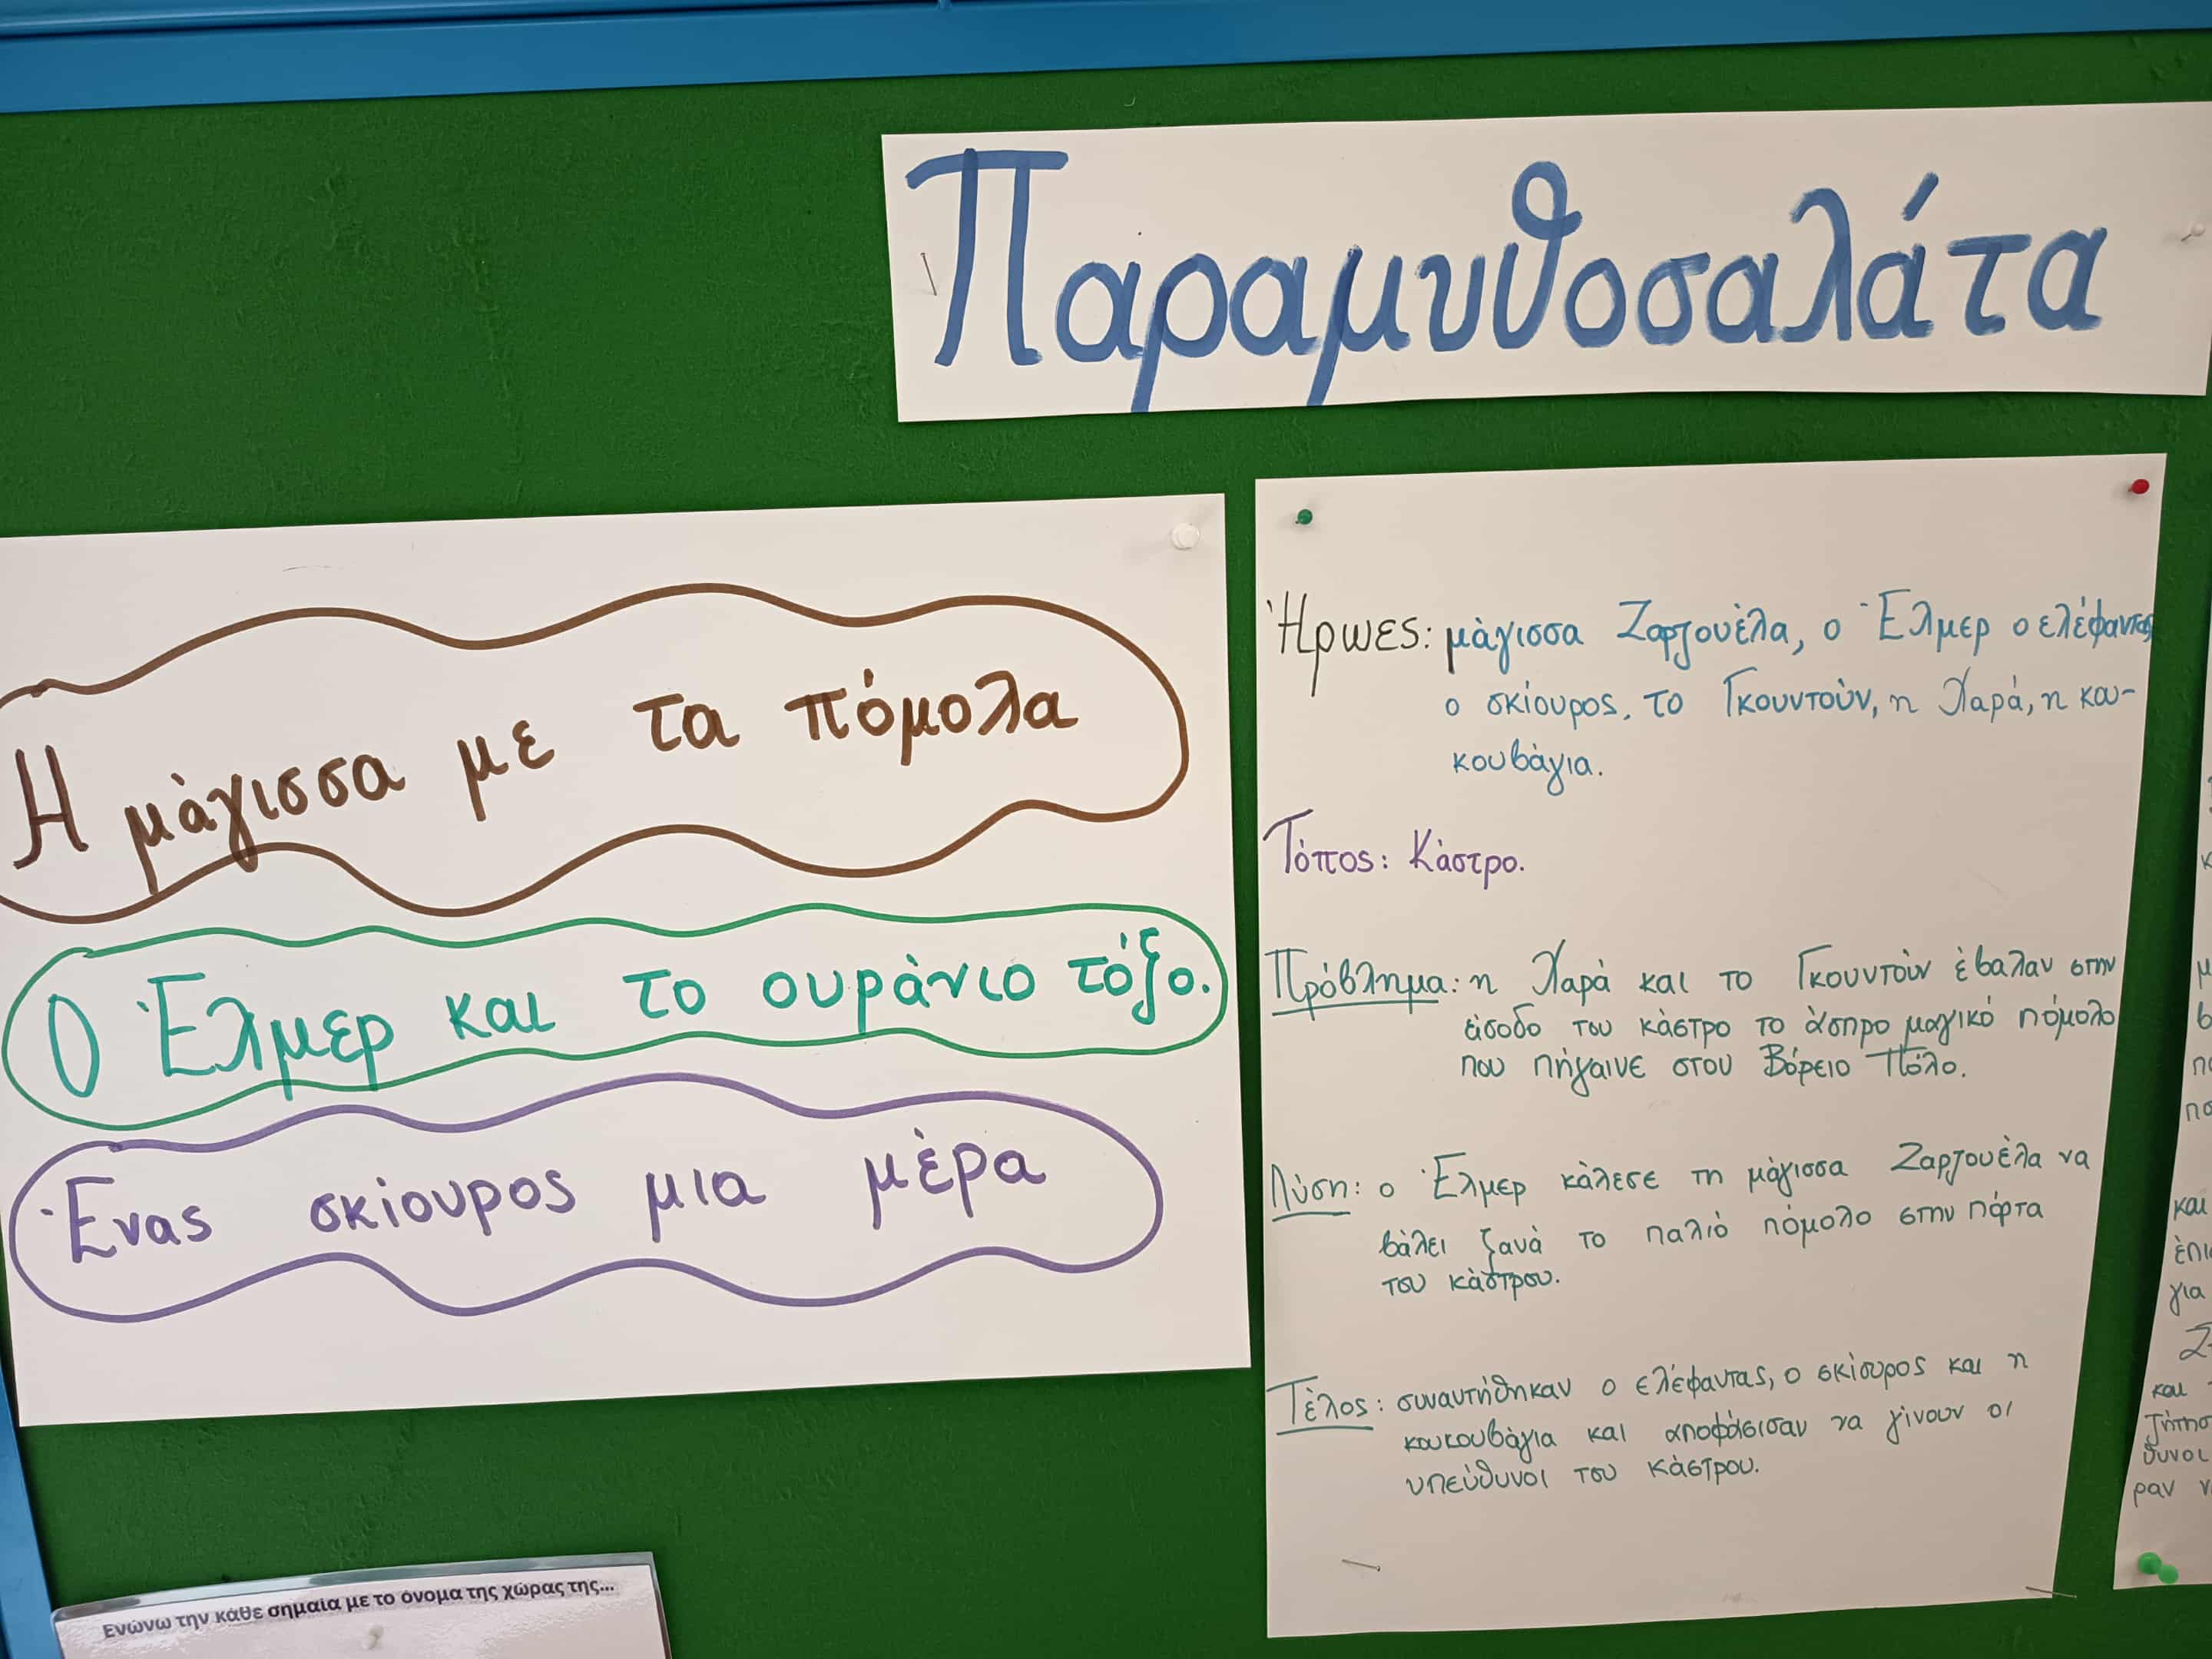 Παραμυθοσαλάτα
Η μάγισσα με τα πόμολα
Ο Έλμερ και το ουράνιο τόξο.
Ένας σκίουρος μια μέρα
Ήρωες: μάγισσα Ζαρζουέλα, ο Έλμερ ο ελέφαντας
ο σκίουρος, το Γκουντούν, η Χαρά, η κου-
κουβάγια.
Τόπος: Κάστρο.
Πρόβλημα: η Χαρά και το Γκουντούν έβαλαν στην
είσοδο του κάστρο το άσπρο μαγικό πόμολο
που πήγαινε στου Βόρειο Πόλο.
Λύση: ο Έλμερ κάλεσε τη μάγισσα Ζαρζουέλα να
βάλει ξανά το παλιό πόμολο στην πόρτα
του κάστρου.
Τέλος: συναντήθηκαν ο ελέφαντας, ο σκίουρος και η
κουκουβάγια και αποφάσισαν να γίνουν οι
υπεύθυνοι του κάστρου.
και
για
και
ραν
Ενώνω την κάθε σημαία με το όνομα της χώρας της...